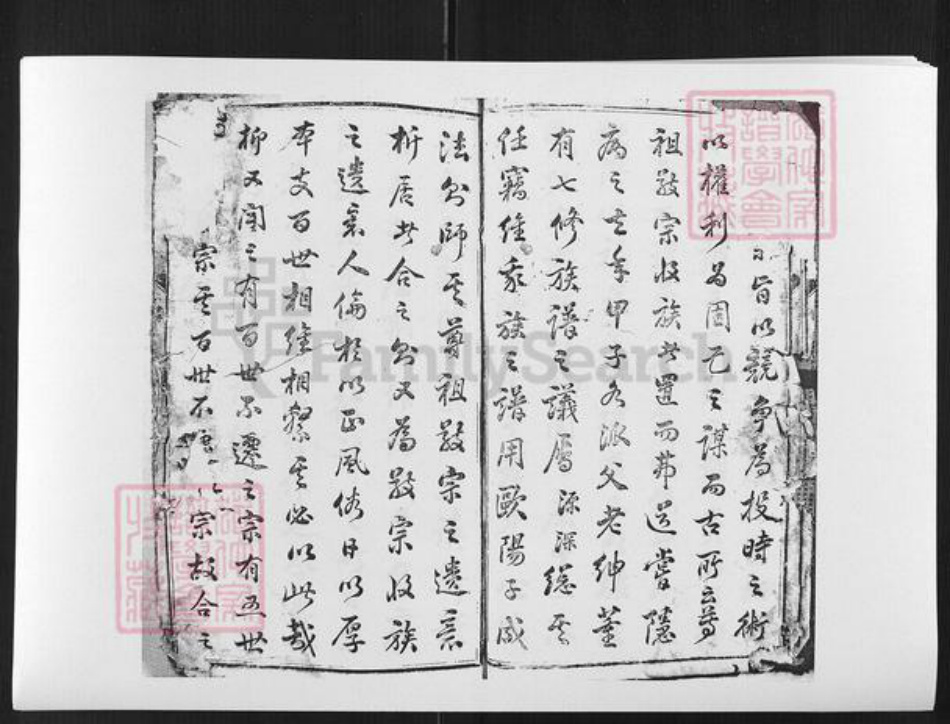 皆以競爭為投時之術
以權利為固己之謀而古所云尊
祖敬宗收族者置而弗道嘗隱
病之去年甲子各派父老紳董
有七修族譜之議屬源深總其
任竊維我族之譜用歐陽子成
法余師其尊祖敬宗之遺意
析居者合之余又為敬宗收族
之遺意人倫於以正風俗日以厚
本支百世相維相繫其必以此哉
抑又聞之有百世不遷之宗有五世
宗其百世不遷 宗故合之
FamilySearch